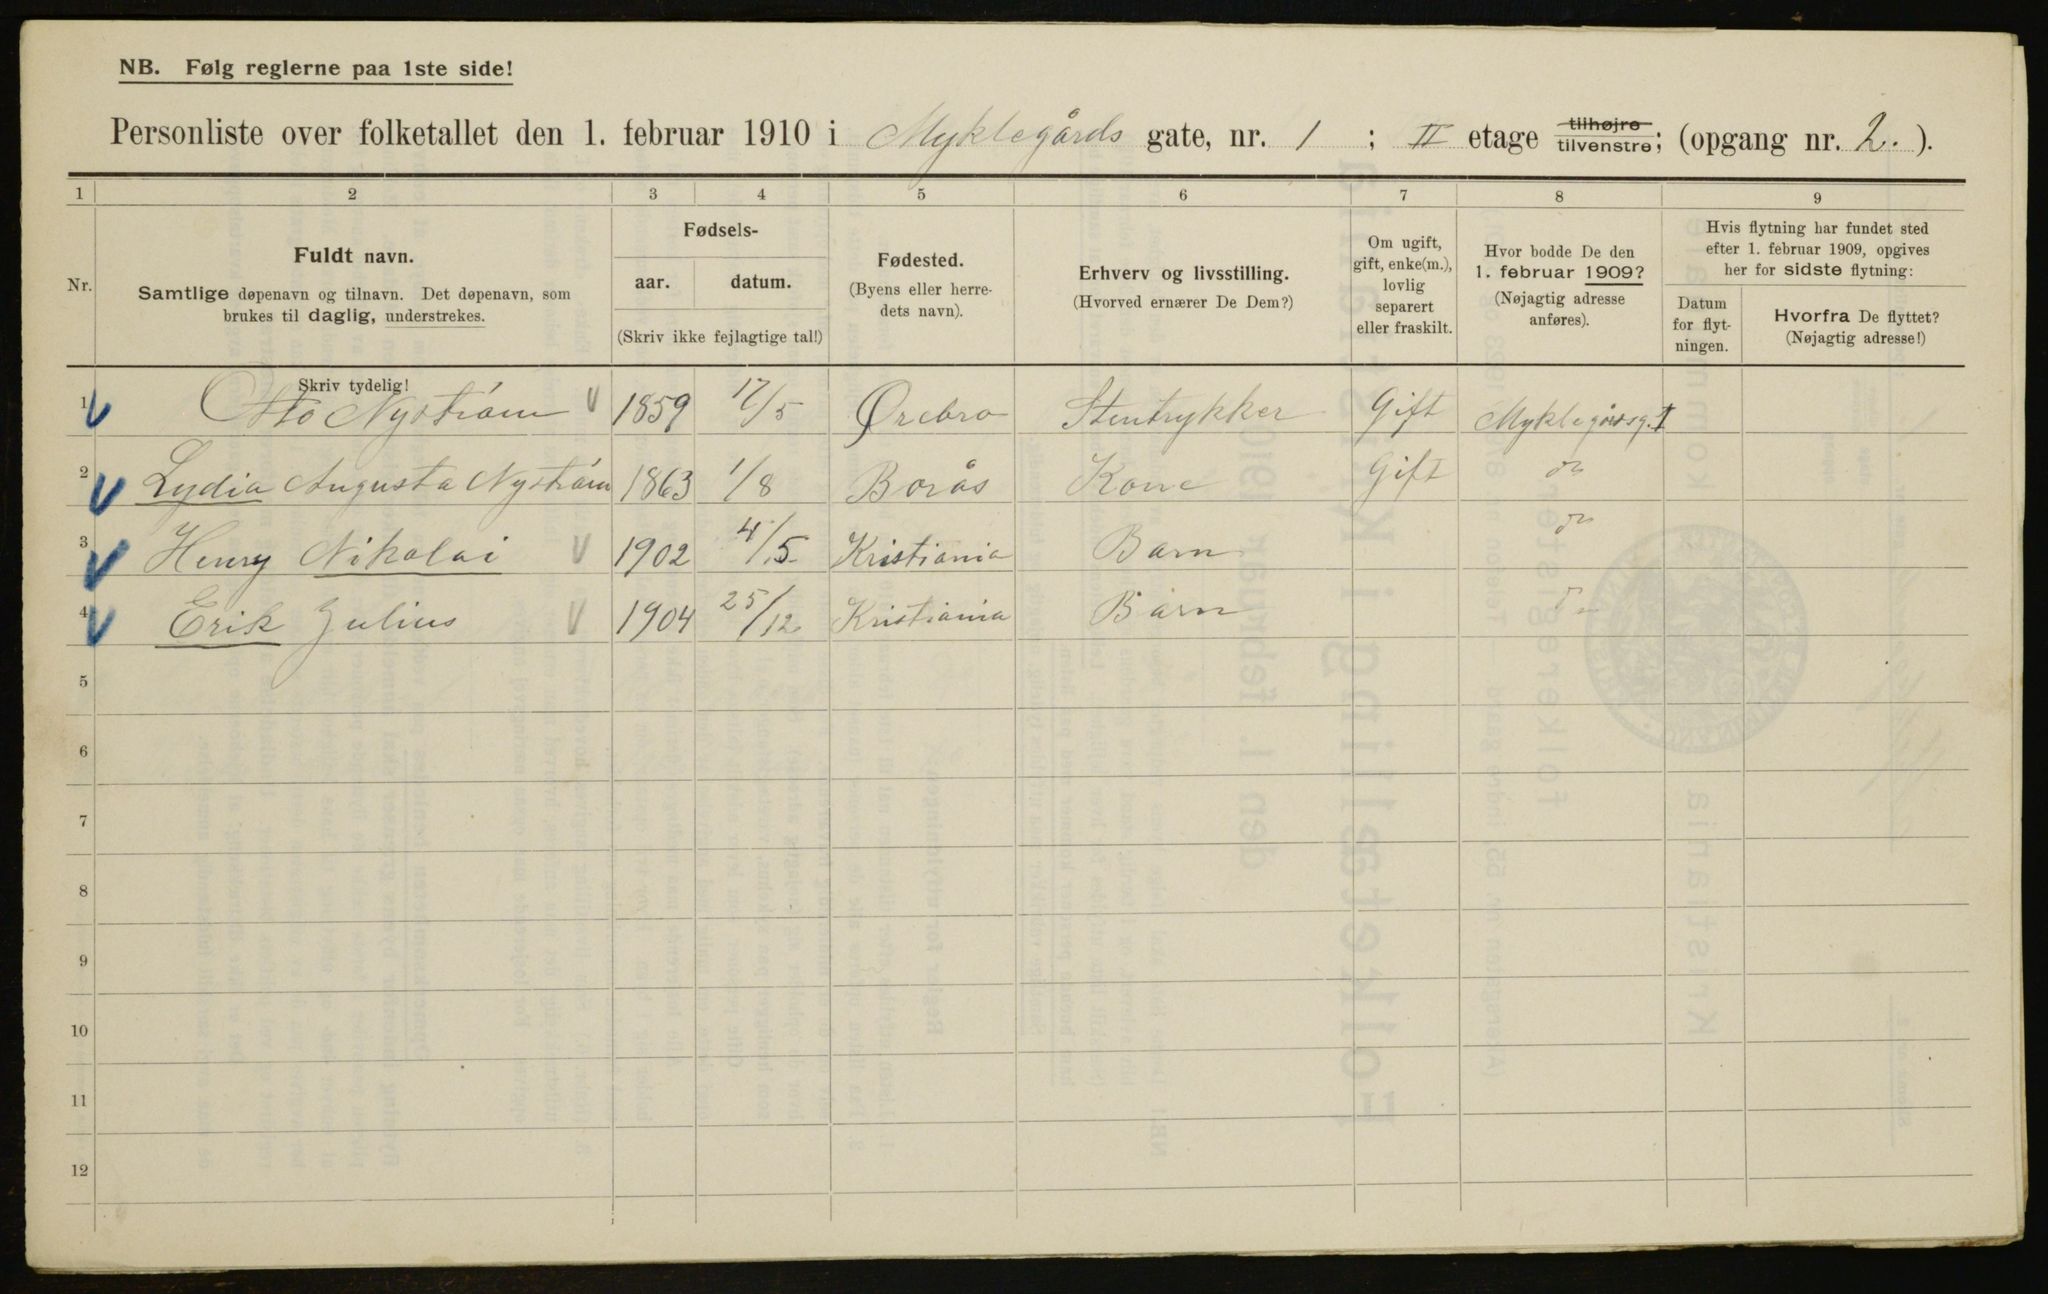 NB. Følg reglerne paa 1ste side!
Personliste over folketallet den 1. februar 1910 i Myklegårds gate, nr. 1 ; II etage tilhøjre tilvenstre; (opgang nr. 2. ).
1 2 3 4 5 6 7 8 9
Nr.
Fuldt navn.
Samtlige døpenavn og tilnavn. Det døpenavn, som
brukes til daglig, understrekes.
Fødsels-
aar. datum.
(Skriv ikke fejlagtige tal!)
Fødested.
(Byens eller herre-
dets navn).
Erhverv og livsstilling.
(Hvorved ernærer De Dem?)
Om ugift,
gift, enke(m.),
lovlig
separert
eller fraskilt.
Hvor bodde De den
1. februar 1909?
(Nøjagtig adresse
anføres).
Hvis flytning har fundet sted
efter 1. februar 1909, opgives
her for sidste flytning:
Datum
for flyt-
ningen.
Hvorfra De flyttet?
(Nøjagtig adresse!)
Skriv tydelig!
1 Otto Nyström 1859 17/5 Ørebro Stentrykker Gift Myklegårdsg. 1
2 Lydia Augusta Nyström 1863 1/8 Borås Kone Gift do
3 Henry Nikolai 1902 4/5 Kristiania Barn do
4 Erik Julius 1904 25/12 Kristiania Barn do
5
6
7
8
9
10
11
12